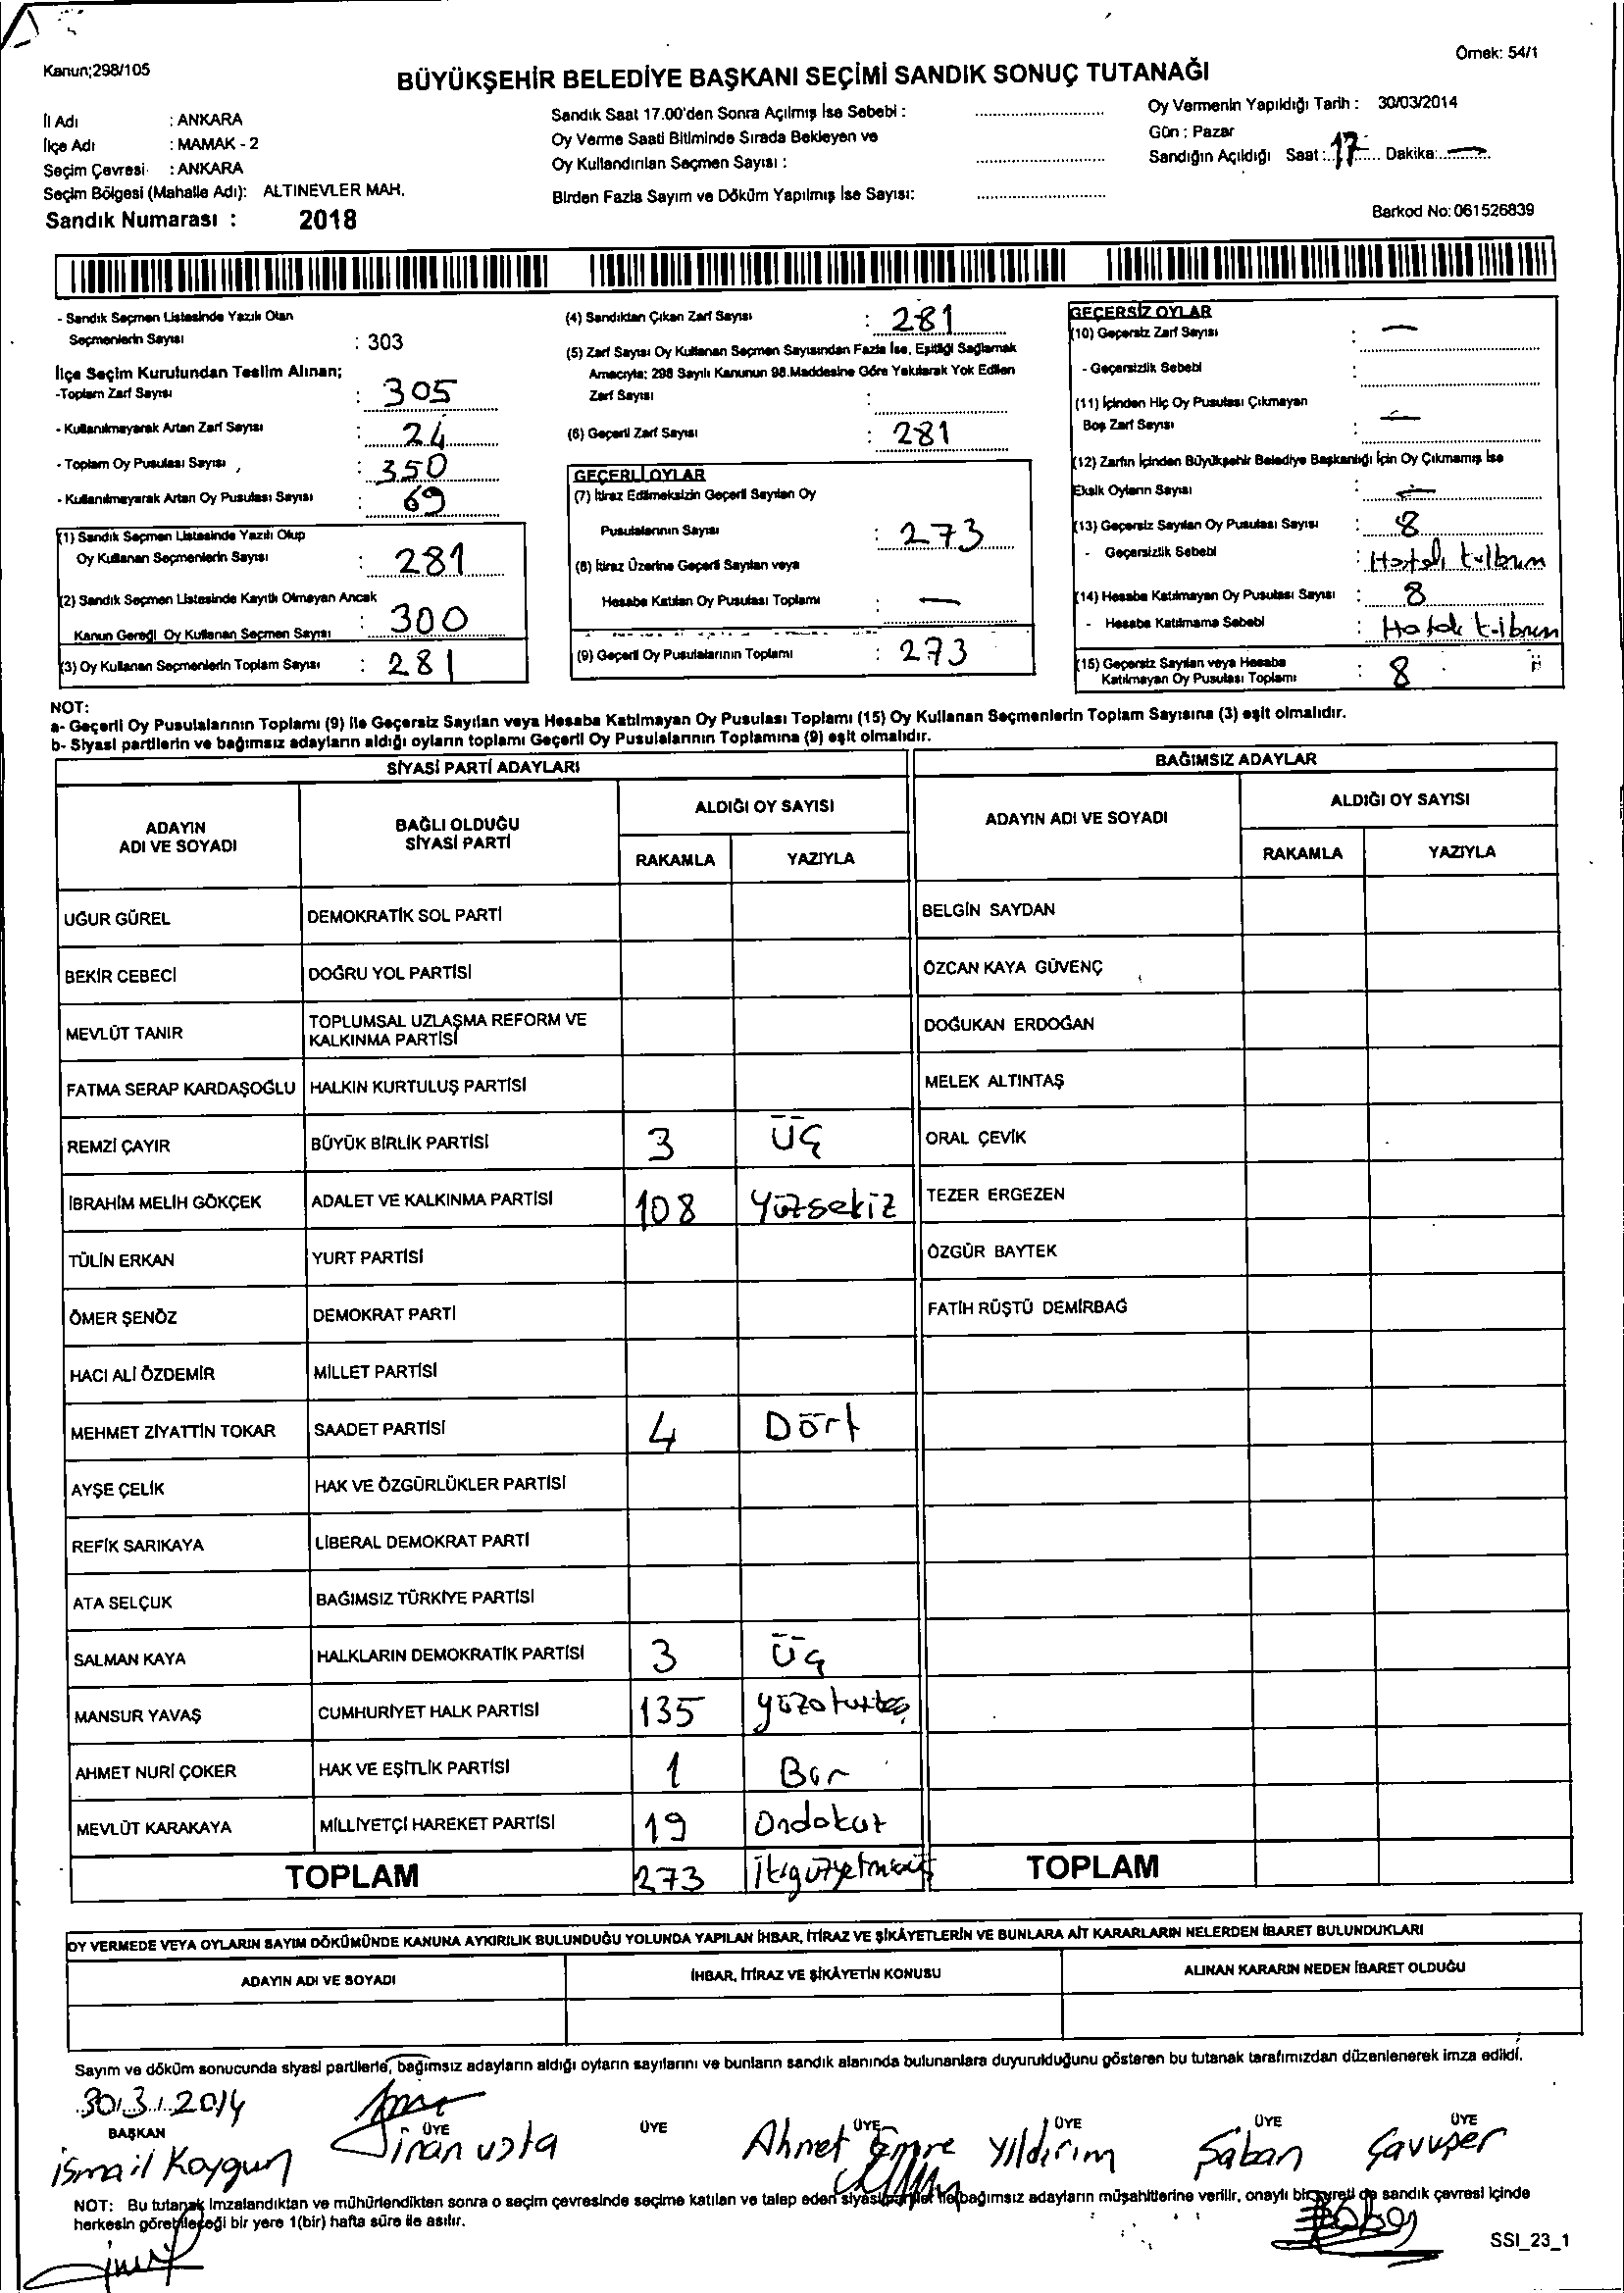 Kanun;298/105
Örnek: 54/1
BÜYÜKŞEHİR BELEDİYE BAŞKANI SEÇİMİ SANDIK SONUÇ TUTANAĞI
İl Adı : ANKARA
İlçe Adı : MAMAK - 2
Seçim Çevresi : ANKARA
Seçim Bölgesi (Mahalle Adı): ALTINEVLER MAH.
Sandık Numarası : 2018
Sandık Saat 17.00'den Sonra Açılmış İse Sebebi :
Oy Verme Saati Bitiminde Sırada Bekleyen ve
Oy Kullandırılan Seçmen Sayısı :
Birden Fazla Sayım ve Döküm Yapılmış İse Sayısı:
Oy Vermenin Yapıldığı Tarih : 30/03/2014
Gün : Pazar
Sandığın Açıldığı Saat : 17 Dakika: —
Barkod No: 061526839
- Sandık Seçmen Listesinde Yazılı Olan
Seçmenlerin Sayısı : 303
İlçe Seçim Kurulundan Teslim Alınan;
-Toplam Zarf Sayısı : 305
- Kullanılmayarak Artan Zarf Sayısı : 24
- Toplam Oy Pusulası Sayısı : 350
- Kullanılmayarak Artan Oy Pusulası Sayısı : 69
(1) Sandık Seçmen Listesinde Yazılı Olup
Oy Kullanan Seçmenlerin Sayısı : 281
(2) Sandık Seçmen Listesinde Kayıtlı Olmayan Ancak
Kanun Gereği Oy Kullanan Seçmen Sayısı : 300
(3) Oy Kullanan Seçmenlerin Toplam Sayısı : 281
(4) Sandıktan Çıkan Zarf Sayısı : 281
(5) Zarf Sayısı Oy Kullanan Seçmen Sayısından Fazla İse, Eşitliği Sağlamak
Amacıyla; 298 Sayılı Kanunun 98.Maddesine Göre Yakılarak Yok Edilen
Zarf Sayısı :
(6) Geçerli Zarf Sayısı : 281
GEÇERLİ OYLAR
(7) İtiraz Edilmeksizin Geçerli Sayılan Oy
Pusulalarının Sayısı : 273
(8) İtiraz Üzerine Geçerli Sayılan veya
Hesaba Katılan Oy Pusulası Toplamı : —
(9) Geçerli Oy Pusulalarının Toplamı : 273
GEÇERSİZ OYLAR
(10) Geçersiz Zarf Sayısı : —
- Geçersizlik Sebebi :
(11) İçinden Hiç Oy Pusulası Çıkmayan
Boş Zarf Sayısı : —
(12) Zarfın İçinden Büyükşehir Belediye Başkanlığı İçin Oy Çıkmamış İse
Eksik Oyların Sayısı : —
(13) Geçersiz Sayılan Oy Pusulası Sayısı : 8
- Geçersizlik Sebebi : Hatalı
(14) Hesaba Katılmayan Oy Pusulası Sayısı : 8
- Hesaba Katılmama Sebebi :
(15) Geçersiz Sayılan veya Hesaba
Katılmayan Oy Pusulası Toplamı : 8
NOT:
a- Geçerli Oy Pusulalarının Toplamı (9) ile Geçersiz Sayılan veya Hesaba Katılmayan Oy Pusulası Toplamı (15) Oy Kullanan Seçmenlerin Toplam Sayısına (3) eşit olmalıdır.
b- Siyasi partilerin ve bağımsız adayların aldığı oyların toplamı Geçerli Oy Pusulalarının Toplamına (9) eşit olmalıdır.
SİYASİ PARTİ ADAYLARI BAĞIMSIZ ADAYLAR
ADAYIN ADI VE SOYADI BAĞLI OLDUĞU SİYASİ PARTİ ALDIĞI OY SAYISI ADAYIN ADI VE SOYADI ALDIĞI OY SAYISI
RAKAMLA YAZIYLA RAKAMLA YAZIYLA
UĞUR GÜREL DEMOKRATİK SOL PARTİ BELGİN SAYDAN
BEKİR CEBECİ DOĞRU YOL PARTİSİ ÖZCAN KAYA GÜVENÇ
MEVLÜT TANIR TOPLUMSAL UZLAŞMA REFORM VE KALKINMA PARTİSİ DOĞUKAN ERDOĞAN
FATMA SERAP KARDAŞOĞLU HALKIN KURTULUŞ PARTİSİ MELEK ALTINTAŞ
REMZİ ÇAYIR BÜYÜK BİRLİK PARTİSİ 3 ÜÇ ORAL ÇEVİK
İBRAHİM MELİH GÖKÇEK ADALET VE KALKINMA PARTİSİ 108 Yüzsekiz TEZER ERGEZEN
TÜLİN ERKAN YURT PARTİSİ ÖZGÜR BAYTEK
ÖMER ŞENÖZ DEMOKRAT PARTİ FATİH RÜŞTÜ DEMİRBAĞ
HACI ALİ ÖZDEMİR MİLLET PARTİSİ
MEHMET ZİYATTİN TOKAR SAADET PARTİSİ 4 Dört
AYŞE ÇELİK HAK VE ÖZGÜRLÜKLER PARTİSİ
REFİK SARIKAYA LİBERAL DEMOKRAT PARTİ
ATA SELÇUK BAĞIMSIZ TÜRKİYE PARTİSİ
SALMAN KAYA HALKLARIN DEMOKRATİK PARTİSİ 3 Üç
MANSUR YAVAŞ CUMHURİYET HALK PARTİSİ 135 yüzotuzbeş
AHMET NURİ ÇOKER HAK VE EŞİTLİK PARTİSİ 1 Bir
MEVLÜT KARAKAYA MİLLİYETÇİ HAREKET PARTİSİ 19 Ondokuz
TOPLAM 273 TOPLAM
OY VERMEDE VEYA OYLARIN SAYIM DÖKÜMÜNDE KANUNA AYKIRILIK BULUNDUĞU YOLUNDA YAPILAN İHBAR, İTİRAZ VE ŞİKÂYETLERİN VE BUNLARA AİT KARARLARIN NELERDEN İBARET BULUNDUKLARI
ADAYIN ADI VE SOYADI İHBAR, İTİRAZ VE ŞİKÂYETİN KONUSU ALINAN KARARIN NEDEN İBARET OLDUĞU
Sayım ve döküm sonucunda siyasi partilerle, bağımsız adayların aldığı oyların sayılarını ve bunların sandık alanında bulunanlara duyurulduğunu gösteren bu tutanak tarafımızdan düzenlenerek imza edildi.
30.3.2014
BAŞKAN ÜYE ÜYE ÜYE ÜYE ÜYE ÜYE
ismail Kaygun Sinan usta Ahmet Emre Yıldırım Şaban Çavuşer
NOT: Bu tutanak imzalandıktan ve mühürlendikten sonra o seçim çevresinde seçime katılan ve talep eden siyasi partiler ile bağımsız adayların müşahitlerine verilir, onaylı bir sureti de sandık çevresi içinde
herkesin görebileceği bir yere 1(bir) hafta süre ile asılır.
SSI_23_1